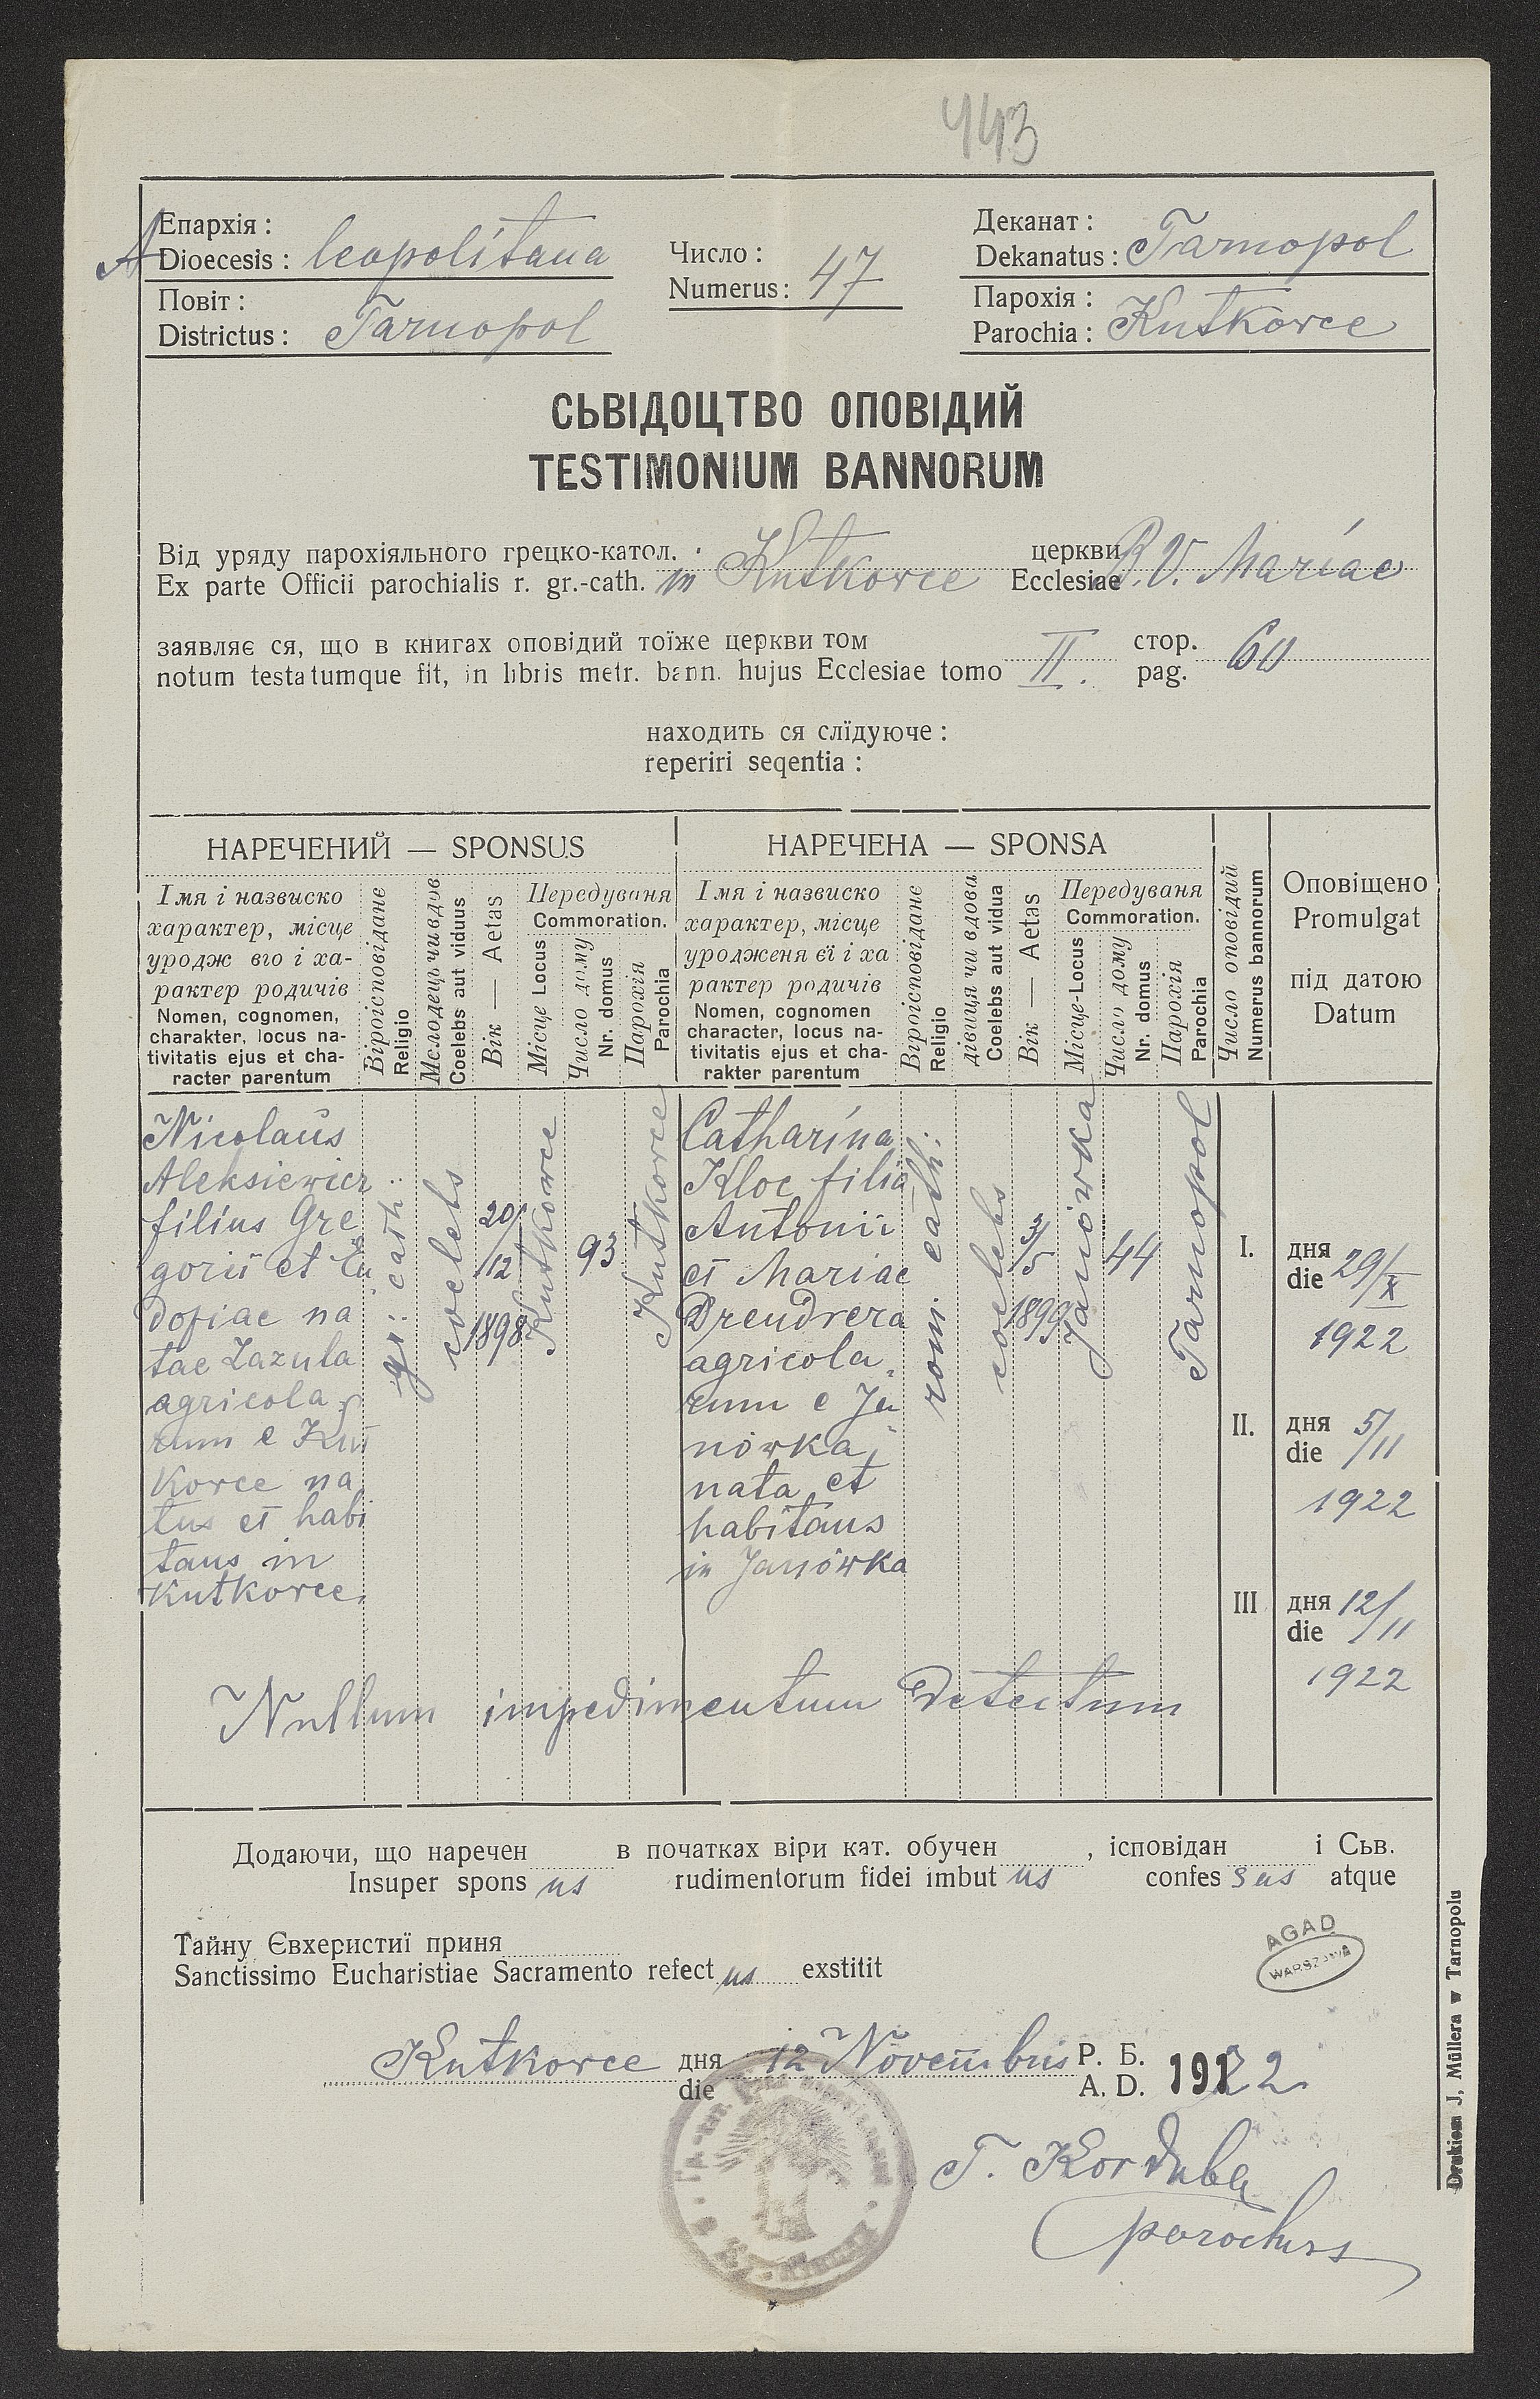 443
Епархія :
Dioecesis : A leopolitana
Повіт :
Districtus : Tarnopol
Число :
Numerus : 47
Деканат :
Dekanatus : Tarnopol
Парохія :
Parochia : Kutkowce
СЬВІДОЦТВО ОПОВІДИЙ
TESTIMONIUM BANNORUM
Від уряду парохіяльного грецко-катол. церкви
Ex parte Officii parochialis r. gr.-cath. in Kutkowce Ecclesiae B. V. Mariae
заявляє ся, що в книгах оповідий тоїже церкви том стор.
notum testatumque fit, in libris metr. bann. hujus Ecclesiae tomo II. pag. 60
находить ся слїдуюче :
reperiri seqentia :
НАРЕЧЕНИЙ — SPONSUS
Імя і назвиско
характер, місце
уродж віо і ха-
рактер родичів
Nomen, cognomen,
charakter, locus na-
tivitatis ejus et cha-
racter parentum
Віроісповіданє
Religio
Молодець чи вдов
Coelebs aut viduus
Вік — Aetas
Передуваня
Commoration.
Місце Locus
Число дому
Nr. domus
Парохія
Parochia
НАРЕЧЕНА — SPONSA
Імя і назвиско
характер, місце
уродженя єї і ха
рактер родичів
Nomen, cognomen
character, locus na-
tivitatis ejus et cha-
rakter parentum
Віроісповіданє
Religio
дівиця чи вдова
Coelebs aut vidua
Вік — Aetas
Передуваня
Commoration.
Місце-Locus
Число дому
Nr. domus
Парохія
Parochia
Число оповідий
Numerus bannorum
Оповіщено
Promulgat
під датою
Datum
Nicolaus
Aleksiewicz
filius Gre
gorii et Eu
dofiae na
tae Zazula
agricola
rum e Kut
kowce na
tus et habi
tans in
Kutkowce.
gr. cath.
coelebs
20/
12
1898
Kutkowce
93
Kutkowce
Catharina
Kloc filia
Antonii
et Mariae
Drendrera
agricola
rum e Ja
nówka,
nata et
habitans
in Janówka
rom cath.
coelebs
3/5
1899
Janówka
44
Tarnopol
I. дня
die 29/X
1922
II. дня
die 5/11
1922
III дня
die 12/11
1922
Nullum impedimentum detectum
Додаючи, що наречен в початках віри кат. обучен , ісповідан і Сьв.
Insuper spons us rudimentorum fidei imbut us confes sus atque
Тайну Євхеристиї приня
Sanctissimo Eucharistiae Sacramento refect us exstitit
AGAD
WARSZAWA
Kutkowce дня 12 Novembris Р. Б.
die A. D. 1922.
T. Korduba
parochus
Drukiem J, Müllera w Tarnopolu